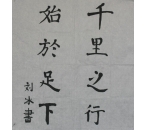 千里之行
始於足下
刘冰書